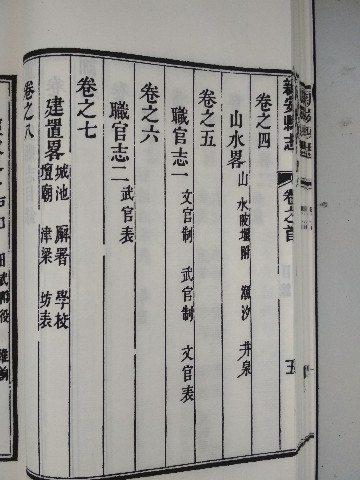 新安縣志 卷之首 五
卷之四
山水畧 山 水陂堰附 潮汐 井泉
卷之五
職官志一 文官制 武官制 文官表
卷之六
職官志二 武官表
卷之七
建置畧 城池 廨署 學校
壇廟 津梁 坊表
卷之八